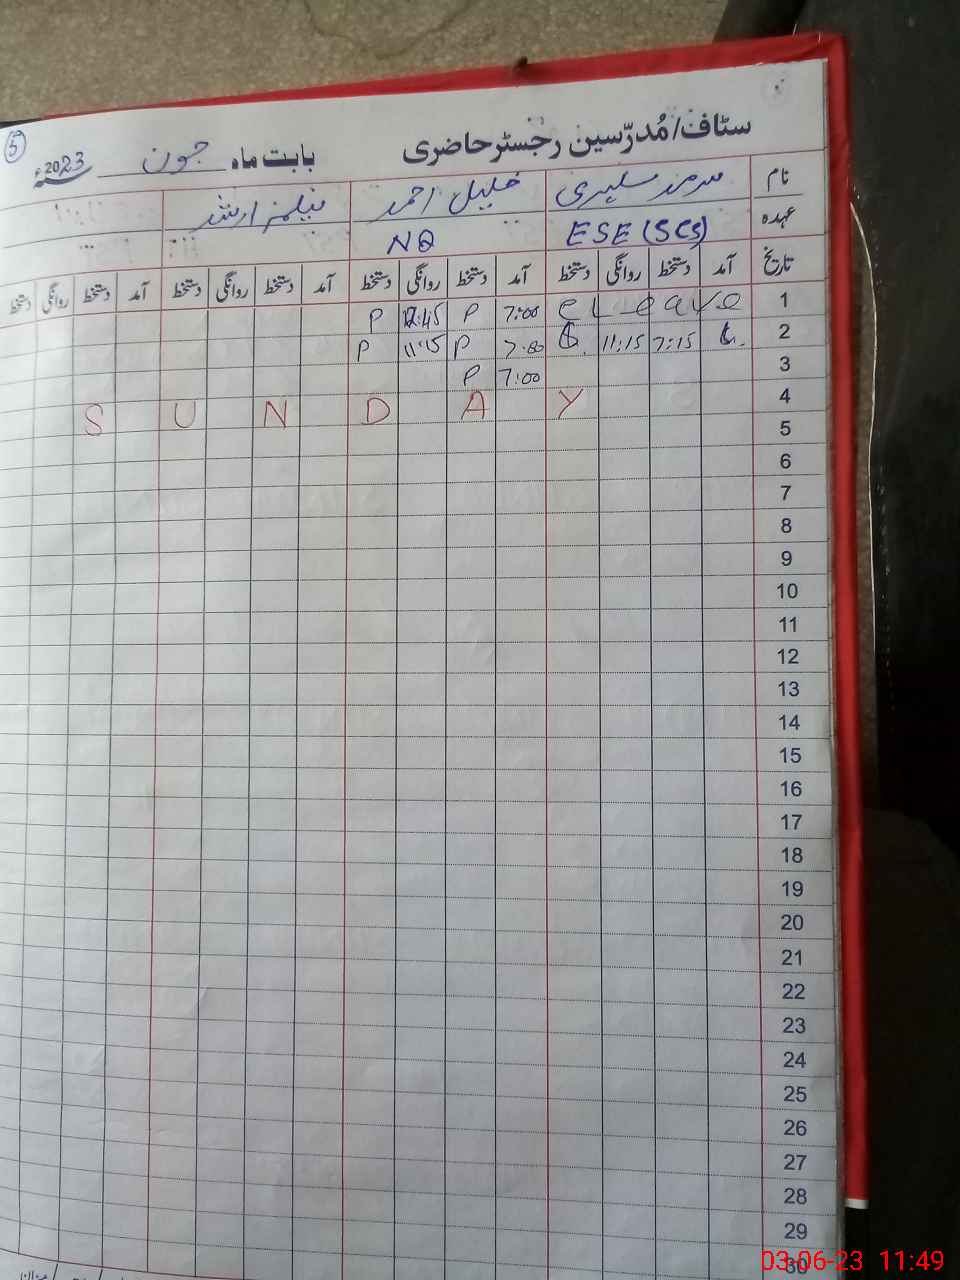 5
سٹاف/مُدرّسین رجسٹر حاضری
بابت ماہ جون 2023ء
نام خلیل احمد
عہدہ ESE (SCS) NQ
تاریخ آمد دستخط روانگی دستخط آمد دستخط روانگی دستخط آمد دستخط روانگی دستخط آمد دستخط روانگی دستخط
1 c Leave 7:00 P 12:45 P
2 7:15 11:15 7:00 P 11:15 P
3 7:00 P
4 S U N D A Y
5
6
7
8
9
10
11
12
13
14
15
16
17
18
19
20
21
22
23
24
25
26
27
28
29
30
03-06-23 11:49